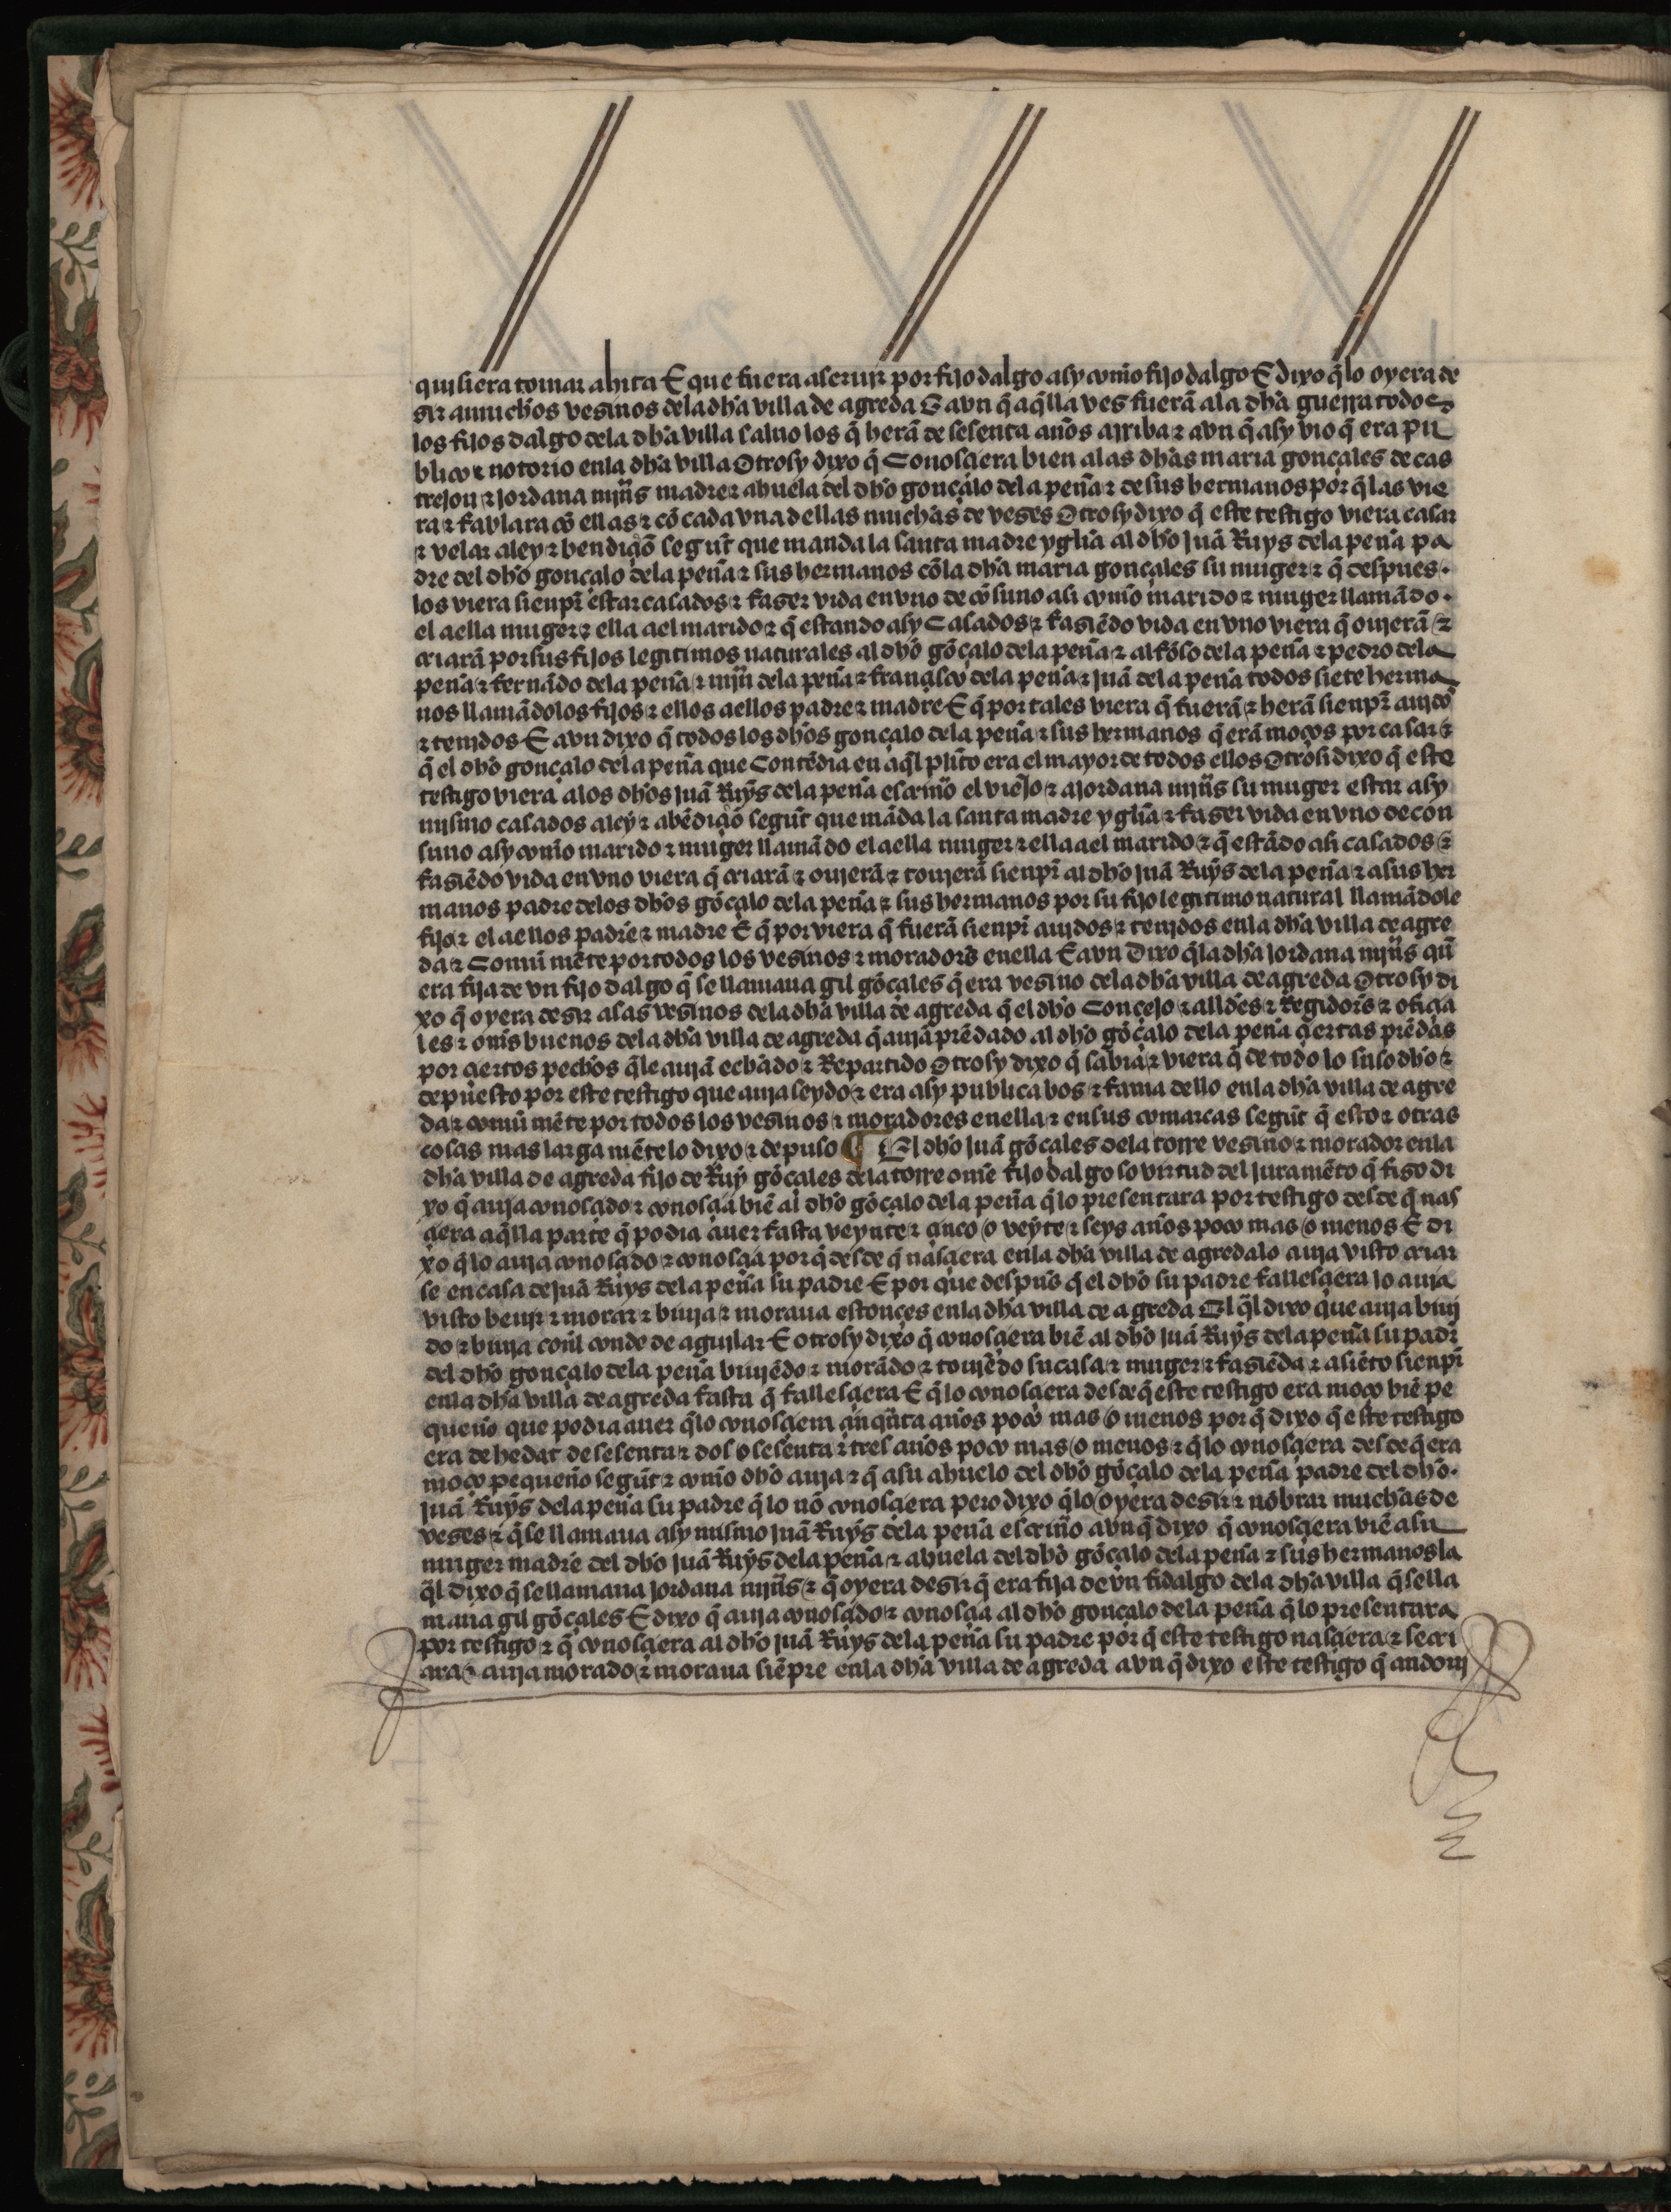 quisiera tomar ahita E que fuera a seruir por fijo dalgo asy com̄o fijo dalgo E dixo q̄ lo oyera de
sir a muchos vesinos dela dh̄a villa de agreda E avn q̄ aq̄lla ves fuerā ala dh̄a guerra todos
los fijos dalgo dela dh̄a villa saluo los q̄ herā de sesenta años arriba ⁊ avn q̄ asy vio q̄ era pu
blico ⁊ notorio enla dh̄a villa Otrosy dixo q̄ Conosçiera bien alas dh̄as maria gonçales de cas
trejon ⁊ jordana mr̄ns madre ⁊ abuela del dh̄o gonçalo dela peña ⁊ de sus hermanos por q̄ las vie
ra ⁊ fablara cō ellas ⁊ cō cada vna dellas muchas de veses Otrosy dixo q̄ este testigo viera casar
⁊ velar a ley ⁊ bendiçiō segūt que manda la santa madre ygl̄ia al dh̄o juā Ruys dela peña pa
dre del dh̄o gonçalo dela peña ⁊ sus hermanos cō la dh̄a maria gonçales su muger ⁊ q̄ despues
los viera sienpr̄ estar casados ⁊ faser vida en vno de cōsuno asi com̄o marido ⁊ muger llamādo
el a ella muger ⁊ ella a el marido ⁊ q̄ estando asy Casados ⁊ fasiēdo vida en vno viera q̄ ouierā ⁊
criarā por sus fijos legitimos naturales al dh̄o gōçalo dela peña ⁊ alfōso dela peña ⁊ pedro dela
peña ⁊ fernādo dela peña ⁊ mr̄n dela peña ⁊ françisco dela peña ⁊ juā dela peña todos siete herma
nos llamādolos fijos ⁊ ellos a ellos padre ⁊ madre E q̄ por tales viera q̄ fuerā ⁊ herā sienpr̄ auidos
⁊ tenjdos E avn dixo q̄ todos los dh̄os gonçalo dela peña ⁊ sus hermanos q̄ erā moços por casar ⁊
q̄ el dh̄o gonçalo dela peña que Contēdia en aq̄l pl̄ito era el mayor de todos ellos Otrosi dixo q̄ este
testigo viera alos dh̄os juā Ruys dela peña escriuāo el viejo ⁊ a jordana mr̄ns su muger estar asy
mismo casados a ley ⁊ a bēdiçiō segūt que māda la santa madre ygl̄ia ⁊ faser vida en vno de con
suno asy com̄o marido ⁊ muger llamādo el a ella muger ⁊ ella a el marido ⁊ q̄ estādo asi casados ⁊
fasiēdo vida en vno viera q̄ criarā ⁊ ouierā ⁊ touierā sienpr̄ al dh̄o juā Ruys dela peña ⁊ a sus her
manos padre delos dh̄os gōçalo dela peña ⁊ sus hermanos por su fijo legitimo natural llamādole
fijo ⁊ el a ellos padre ⁊ madre E q̄ por viera q̄ fuerā sienpr̄ auidos ⁊ tenjdos enla dh̄a villa de agre
da ⁊ Comū mēte por todos los vesinos ⁊ moradores enella E avn Dixo q̄ la dh̄a jordana mr̄ns q̄
era fija de vn fijo dalgo q̄ se llamaua gil gōçales q̄ era vesino dela dh̄a villa de agreda Otrosy di
xo q̄ oyera desir a los vesinos dela dh̄a villa de agreda q̄ el dh̄o Concejo ⁊ all̄des ⁊ Regidores ⁊ ofiçia
les ⁊ om̄s buenos dela dh̄a villa de agreda q̄ auiā prēdado al dh̄o gōçalo dela peña çiertas prēdas
por çiertos pechos q̄ le auiā echado ⁊ Repartido Otrosy dixo q̄ sabia ⁊ viera q̄ de todo lo suso dh̄o ⁊
depuesto por este testigo que auja seydo ⁊ era asy publica bos ⁊ fama dello enla dh̄a villa de agre
da ⁊ comū mēte por todos los vesinos ⁊ moradores enella ⁊ en sus comarcas segūt q̄ esto ⁊ otras
cosas mas larga mēte lo dixo ⁊ depuso ¶ El dh̄o juā gōçales dela torre vesino ⁊ morador enla
dh̄a villa de agreda fijo de Ruy gōçales dela torre ome fijo dalgo so virtud del juramēto q̄ fiso di
xo q̄ auja conosçido ⁊ conosçia biē al dh̄o gōçalo dela peña q̄ lo presentara por testigo desde q̄ nas
çiera aq̄lla parte q̄ podia auer fasta veynte ⁊ çinco o veynte ⁊ seys años poco mas o menos E di
xo q̄ lo auja conosçido ⁊ conosçia por q̄ desde q̄ nasçiera enla dh̄a villa de agreda lo auja visto criar
se en casa de juā Ruys dela peña su padre E por que despus q̄ el dh̄o su padre fallesçiera lo auja
visto beuir ⁊ morar ⁊ biuja ⁊ moraua estonces enla dh̄a villa de agreda El q̄l dixo que auja biuj
do ⁊ biuja con̄l conde de aguilar E otrosy dixo q̄ conosçiera biē al dh̄o juā Ruys dela peña su padr̄
del dh̄o gonçalo dela peña biuiēdo ⁊ morādo ⁊ touiēdo su casa ⁊ muger ⁊ fasiēda ⁊ asiēto sienpr̄
enla dh̄a villa de agreda fasta q̄ fallesçiera E q̄ lo conosçiera desde q̄ este testigo era moço biē pe
queño que podia auer q̄ lo conosçiera çinq̄nta años poco mas o menos por q̄ dixo q̄ este testigo
era de hedat de sesenta ⁊ dos o sesenta ⁊ tres años poco mas o menos ⁊ q̄ lo conosçiera desde q̄ era
moço pequeño segūt ⁊ com̄o dh̄o auja ⁊ q̄ a su abuelo del dh̄o gōçalo dela peña padre del dh̄o
juā Ruys dela peña su padre q̄ lo nō conosçiera pero dixo q̄ lo oyera desir ⁊ nōbrar muchas de
veses ⁊ q̄ se llamaua asy mismo juā Ruys dela peña escriuāo avn q̄ dixo q̄ conosçiera viē a su
muger madre del dh̄o juā Ruys dela peña ⁊ abuela del dh̄o gōçalo dela peña ⁊ sus hermanos la
q̄l dixo q̄ se llamaua jordana mr̄ns ⁊ q̄ oyera desir q̄ era fija de vn fidalgo dela dh̄a villa q̄ se lla
maua gil gōçales E dixo q̄ auja conosçido ⁊ conosçia al dh̄o gonçalo dela peña q̄ lo presentara
por testigo ⁊ q̄ conosçiera al dh̄o juā Ruys dela peña su padre por q̄ este testigo nasçiera ⁊ se cri
ara ⁊ auja morado ⁊ moraua siēpre enla dh̄a villa de agreda avn q̄ dixo este testigo q̄ andouj